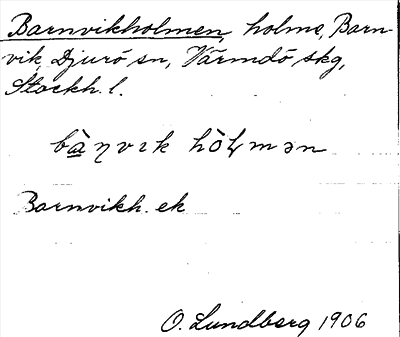 Barnvikholmen, holme, Barn-
vik, Djurö sn, Värmdö skg,
Stockh. l.
Barnvikh. ek
O. Lundberg 1906